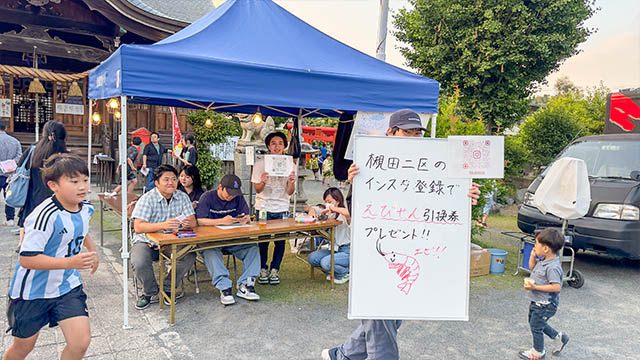 槻田二区の
インスタ登録で
えびせん引換券
プレゼント!!
エビ!!
10